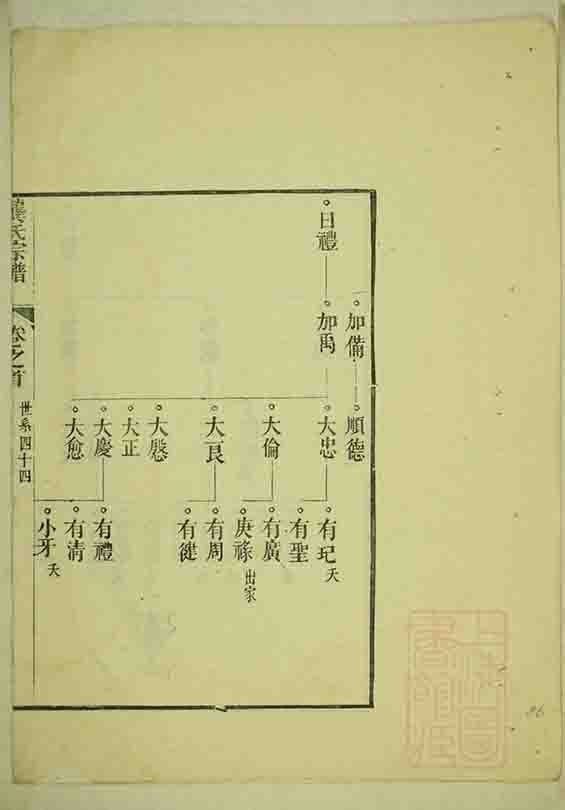 日禮
加備
加禹
順德
大忠
大倫
大良
大慇
大正
大慶
大愈
有玘 夭
有聖
有廣
庚祿 出家
有周
有健
有禮
有清
小牙 夭
龔氏宗譜
卷之首
世系四十四
上海圖書館藏
86